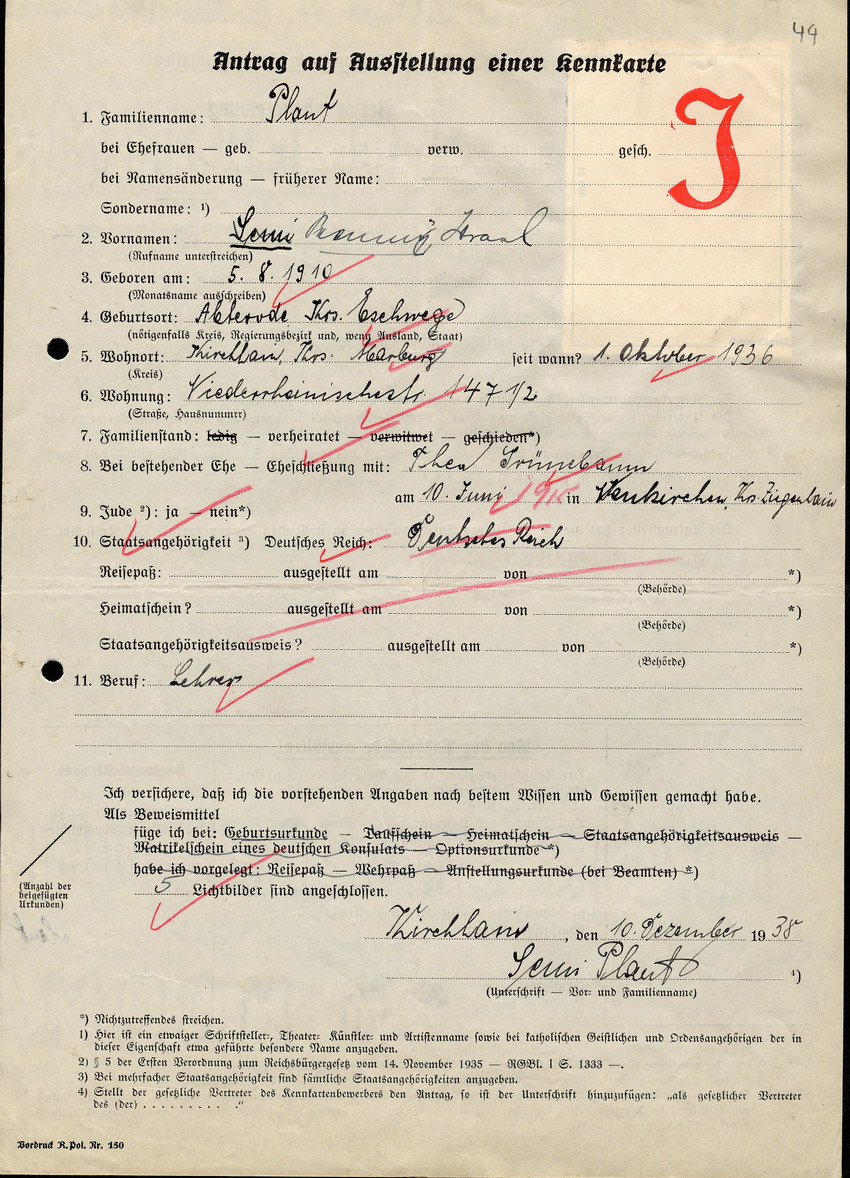 49
Antrag auf Ausstellung einer Kennkarte
J
1. Familienname: Plaut
bei Ehefrauen — geb. verw. gesch.
bei Namensänderung — früherer Name:
Sondername: ¹)
2. Vornamen: Semi Israel
(Rufname unterstreichen)
3. Geboren am: 5. 8. 1910
(Monatsname ausschreiben)
4. Geburtsort: Abterode Krs. Eschwege
(nötigenfalls Kreis, Regierungsbezirk und, wenn Ausland, Staat)
5. Wohnort: Kirchhain, Krs. Marburg seit wann? 1. Oktober 1936
(Kreis)
6. Wohnung: Niederrheinischestr. 147 1/2
(Straße, Hausnummer)
7. Familienstand: ledig — verheiratet — verwitwet — geschieden*)
8. Bei bestehender Ehe — Eheschließung mit: Thea Grünebaum
am 10. Juni in Neukirchen, Krs. Ziegenhain
9. Jude ²): ja — nein*)
10. Staatsangehörigkeit ³) Deutsches Reich: Deutsches Reich
Reisepaß: ausgestellt am von *)
(Behörde)
Heimatschein? ausgestellt am von *)
(Behörde)
Staatsangehörigkeitsausweis? ausgestellt am von *)
(Behörde)
11. Beruf: Lehrer
Ich versichere, daß ich die vorstehenden Angaben nach bestem Wissen und Gewissen gemacht habe.
Als Beweismittel
füge ich bei: Geburtsurkunde — Taufschein — Heimatschein — Staatsangehörigkeitsausweis —
Matrikelschein eines deutschen Konsulats — Optionsurkunde *)
habe ich vorgelegt: Reisepaß — Wehrpaß — Anstellungsurkunde (bei Beamten) *)
5 Lichtbilder sind angeschlossen.
(Anzahl der
beigefügten
Urkunden)
Kirchhain, den 10. Dezember 1938
Semi Plaut ⁴)
(Unterschrift — Vor- und Familienname)
*) Nichtzutreffendes streichen.
1) Hier ist ein etwaiger Schriftsteller-, Theater- Künstler- und Artistenname sowie bei katholischen Geistlichen und Ordensangehörigen der in
dieser Eigenschaft etwa geführte besondere Name anzugeben.
2) § 5 der Ersten Verordnung zum Reichsbürgergesetz vom 14. November 1935 — RGBl. I S. 1333 —.
3) Bei mehrfacher Staatsangehörigkeit sind sämtliche Staatsangehörigkeiten anzugeben.
4) Stellt der gesetzliche Vertreter des Kennkartenbewerbers den Antrag, so ist der Unterschrift hinzuzufügen: „als gesetzlicher Vertreter
des (der) . . . . . . . . . ."
Vordruck R.Pol. Nr. 150